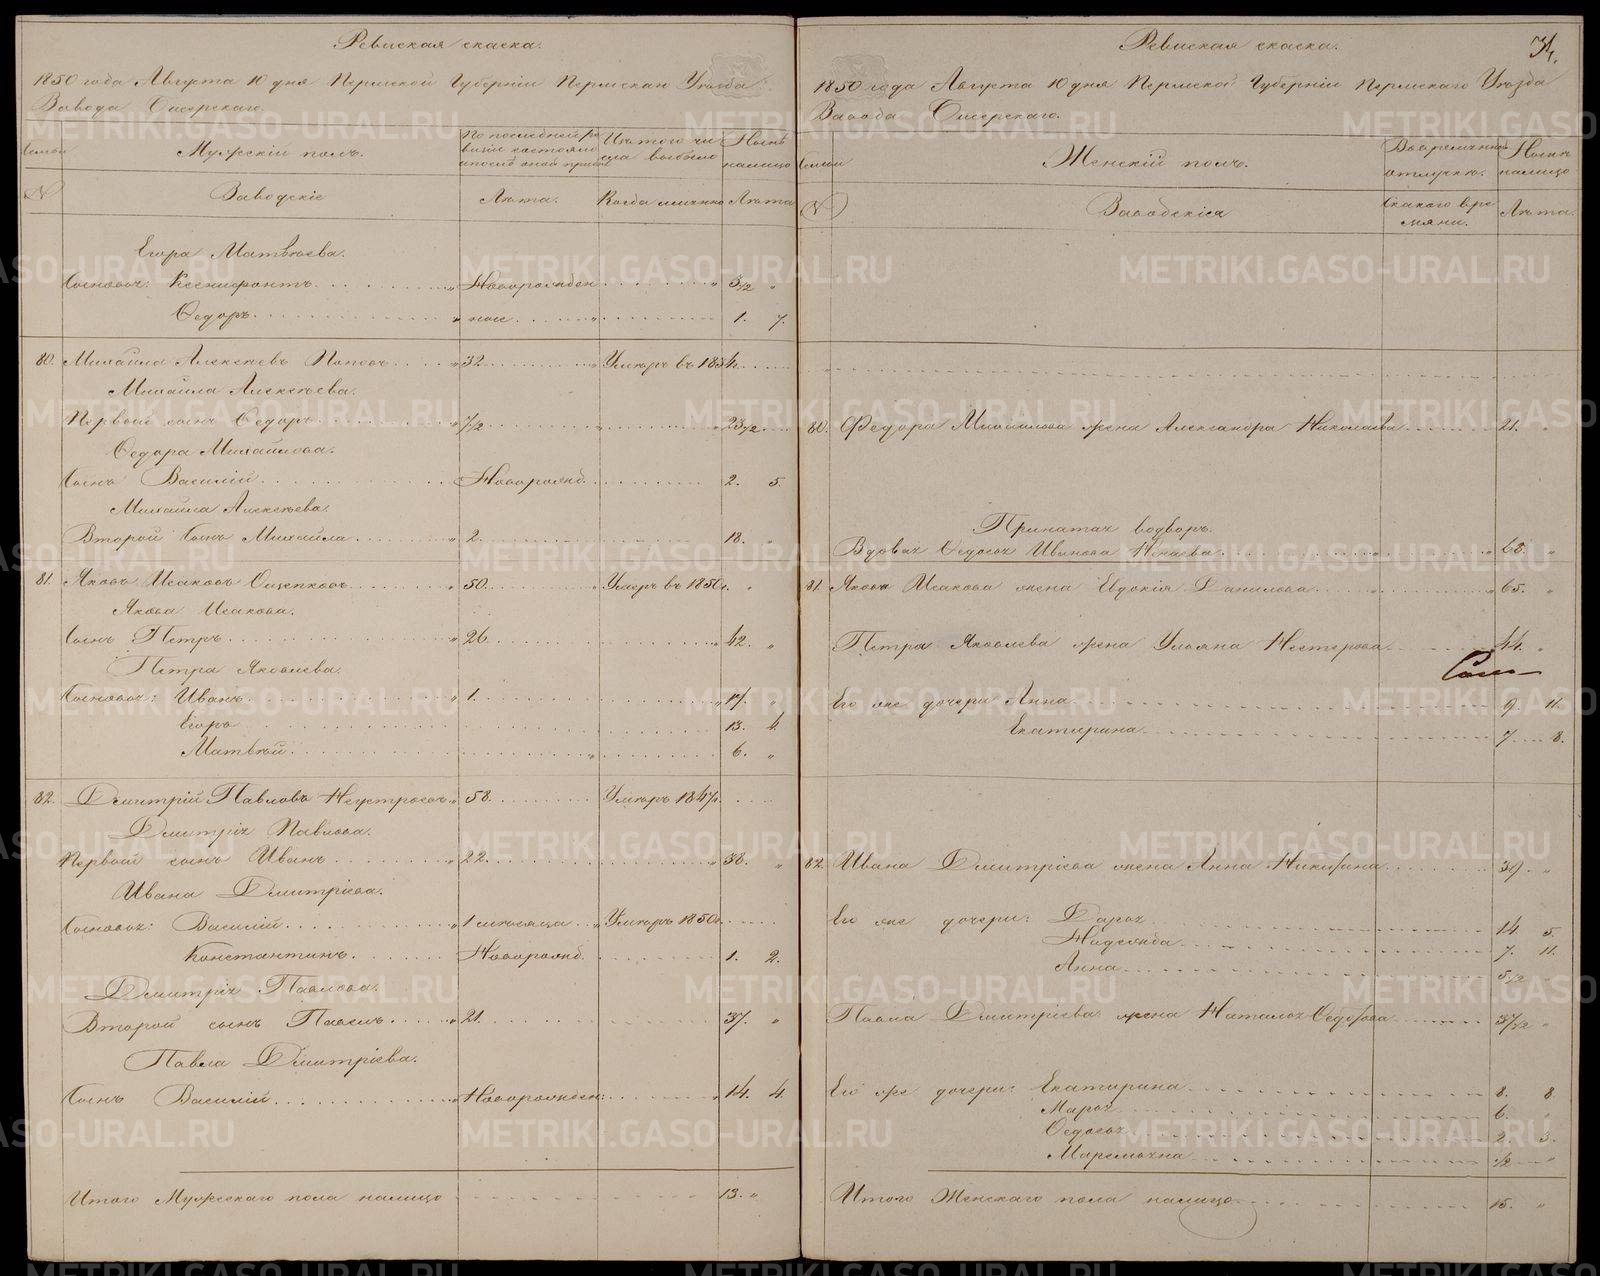 Ревиская скаска.
1850 года Августа 10 дня Пермской Губернiи Пермскаи Уѣзда
Завода Сисерскаго.
Семьи
Мужескiй полъ.
По последней ре
визiи состояло
и после оной прибы
Изъ того чи
сла выбыло
Нынѣ
налицо
№
Заводскiе
Лѣта.
Когда имянно
Лѣта
Егора Матвѣева.
Сыновья: Ксенифонтъ " Новорожден " 3½ "
Ѳедоръ " тож " 1. 7.
80. Михайла Алексѣевъ Поповъ " 32 " Умеръ въ 1834.
Михайла Алексѣева.
Первой сынъ Ѳедоръ " 7½ " 23½
Ѳедора Михайлова.
Сынъ Василiй Новорожд. 2. 5.
Михайла Алексѣева.
Второй Сынъ Михайла " 2. 18. "
81. Яковъ Исаковъ Ощепковъ " 50. " Умеръ въ 1850г. "
Якова Исакова.
Сынъ Петръ " 26 " 42. "
Петра Яковлева.
Сыновья: Иванъ " 1. " 17. "
Егоръ 13. 4.
Матвѣй " 6. "
82. Дмитрiй Павловъ Неустроевъ " 58. Умеръ 1847г.
Дмитрiя Павлова.
Первой сынъ Иванъ " 22 " 38. "
Ивана Дмитрiева.
Сыновья: Василiй " 1 месяца " Умеръ 1850г.
Константинъ Новорожд. 1. 2.
Дмитрiя Павлова.
Второй сынъ Павелъ " 21. 37. "
Павла Дмитрiева.
Сынъ Василiй " Новорожден: " 14. 4.
Итого Мужескаго пола налицо 13. "
Ревиская скаска.
1850 года Августа 10 дня Пермской Губернiи Пермскаго Уѣзда
Завода Сисерскаго.
Семьи
Женскiй полъ.
Во временной
отлучкѣ.
Нынѣ
налицо
№
Заводскiя
Съ какого вре
мяни.
Лѣта.
80. Федора Михайлова жена Александра Николаева 21. "
Принатая водворъ.
Вдовая Ѳедосья Иванова Нечаева " " 63. "
81. Якова Исакова жена Евдокiя Данилова " " 65. "
Петра Яковлева жена Ульяна Нестерова 44. "
Его же дочери Анна 9. 11.
Екатирина 7. 8.
82. Ивана Дмитрiева жена Анна Никитина 39. "
Его же дочери: Дарья 14. 5.
Надежда 7. 11.
Анна 5½ "
Павла Дмитрiева жена Наталья Ѳедотова 37½ "
Его же дочери: Екатирина 8. 8.
Марья 6. "
Ѳедосья 2. 3.
Маремьяна ½ "
Итого Женскаго пола налицо 15. "
METRIKI.GASO-URAL.RU